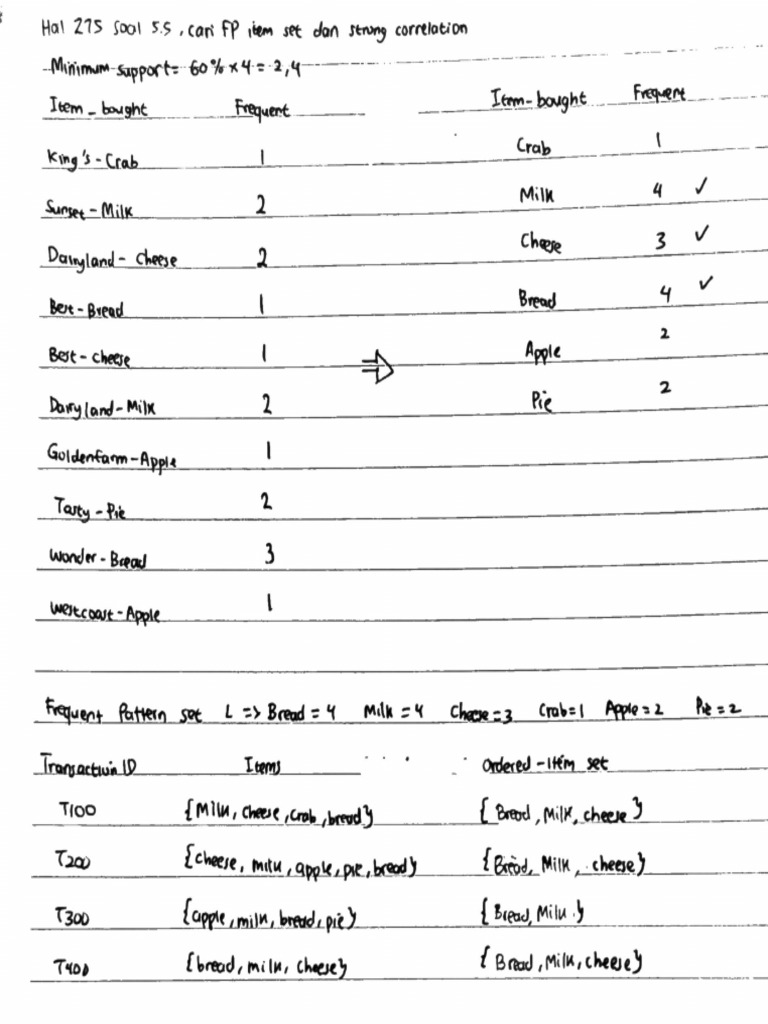 Hal 275 Soal 5.5, cari FP item set dan strong correlation
Minimum support = 60% x 4 = 2,4
Item_bought Frequent Item-bought Frequent
King's-Crab 1 Crab 1
Sunset-Milk 2 Milk 4 ✓
Dairyland-Cheese 2 Cheese 3 ✓
Best-Bread 1 Bread 4 ✓
Best-cheese 1 ⇒ Apple 2
Dairyland-Milk 2 Pie 2
Goldenfarm-Apple 1
Tasty-Pie 2
Wonder-Bread 3
Westcoast-Apple 1
Frequent Pattern set L => Bread = 4 Milk = 4 Cheese = 3 Crab = 1 Apple = 2 Pie = 2
Transaction ID Items Ordered-Item set
T100 {Milk, cheese, crab, bread} {Bread, Milk, cheese}
T200 {cheese, milk, apple, pie, bread} {Bread, Milk, cheese}
T300 {apple, milk, bread, pie} {Bread, Milk}
T400 {bread, milk, cheese} {Bread, Milk, cheese}